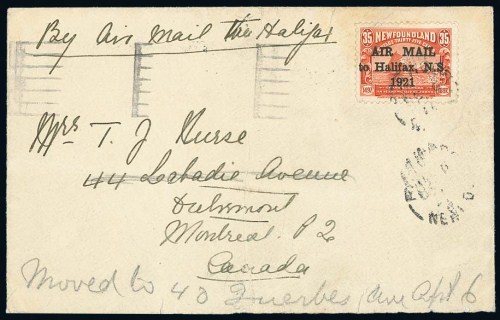 By Air Mail thro Halifax
35 NEWFOUNDLAND 35
AIR MAIL
to Halifax, N.S.
1921
1497 1897
Mrs T. J Hurse
44 Labadie Avenue
Montreal P2
Canada
Moved to 40 Querbes Ave Apt 6